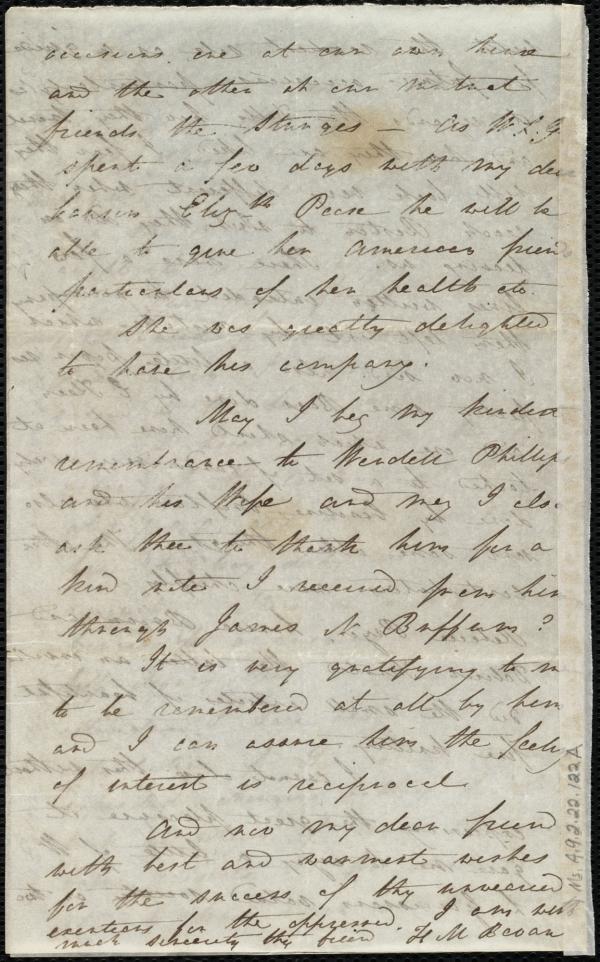 occasions one at our own house
and the other at our mutual
friends the Sturges – as W. L. G
spent a few days with my dea
cousin Elizth Pease he will be
able to give her American frien
particulars of her health etc.
She was greatly delighted
to have his company.
May I beg my kindes
remembrance to Wendell Phillip
and his Wife and may I also
ask thee to thank him for a
kind note I received from him
through James N Buffum?
It is very gratifying to m
to be remembered at all by him
and I can assure him the feeling
of interest is reciprocal
And now my dear frien
with best and warmest wishes
for the success of thy unwearied
exertions for the oppressed. I am with
much sincerity thy friend H M Bevan
Ms. A.9.2.22.122A